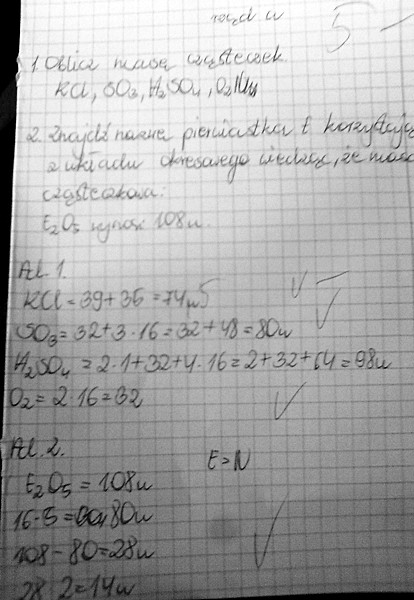 rząd w
5-
1. Oblicz masę cząsteczek
KCl, SO3, H2SO4, O2
2. Znajdź nazwę pierwiastka E korzystając
z układu okresowego wiedząc, że masa
cząsteczkowa:
E2O5 wynosi 108u.
Ad. 1.
KCl = 39 + 35 = 74u5
SO3 = 32 + 3 · 16 = 32 + 48 = 80u
H2SO4 = 2 · 1 + 32 + 4 · 16 = 2 + 32 + 64 = 98u
O2 = 2 · 16 = 32
Ad. 2.
E = N
E2O5 = 108u
16 · 5 = 80u
108 - 80 = 28u
28 2 = 14u